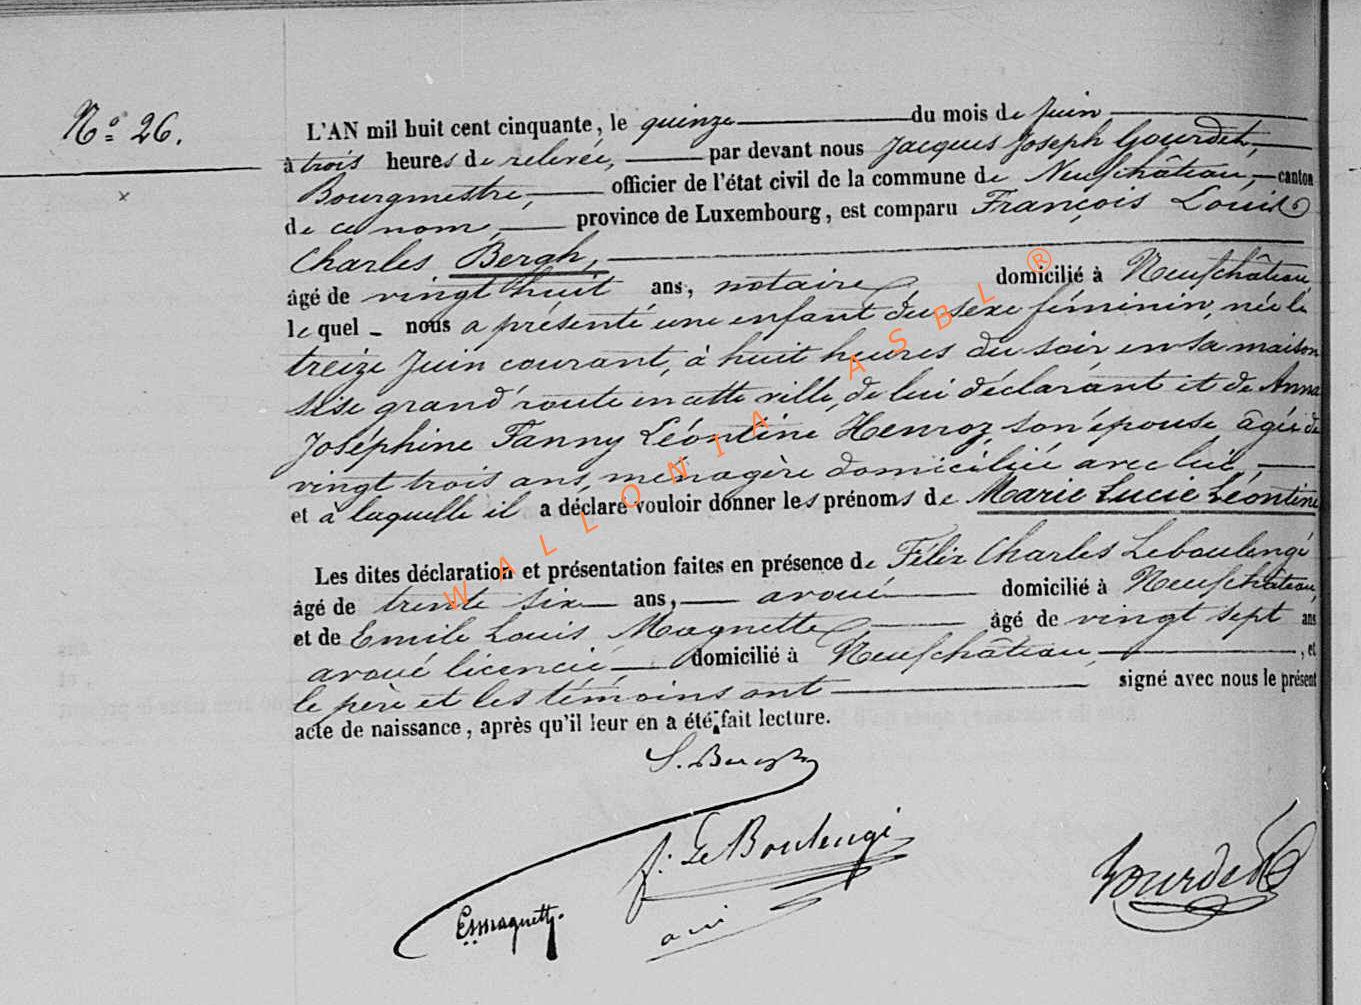 N° 26.
L'AN mil huit cent cinquante, le quinze du mois de Juin
à trois heures de relevée, par devant nous Jacques Joseph Gourdet,
Bourgmestre, officier de l'état civil de la commune de Neufchâteau, canton
de ce nom, province de Luxembourg, est comparu François Louis
Charles Bergh,
âgé de vingt huit ans, notaire domicilié à Neufchâteau,
lequel nous a présenté une enfant du sexe féminin, née le
treize Juin courant, à huit heures du soir en sa maison
sise grand'route en cette ville, de lui déclarant et de Anna
Joséphine Fanny Léontine Henroz, son épouse âgée de
vingt trois ans, ménagère domiciliée avec lui,
et à laquelle il a déclaré vouloir donner les prénoms de Marie Lucie Léontine
Les dites déclaration et présentation faites en présence de Félix Charles Leboulengé
âgé de trente six ans, avoué domicilié à Neufchâteau,
et de Emile Louis Magnette âgé de vingt sept ans
avoué licencié domicilié à Neufchâteau, et
le père et les témoins ont signé avec nous le présent
acte de naissance, après qu'il leur en a été fait lecture.
L. Bergh
f. Le Boulengé
Emagnette.
Gourdet
WALLONIA ASBL ®